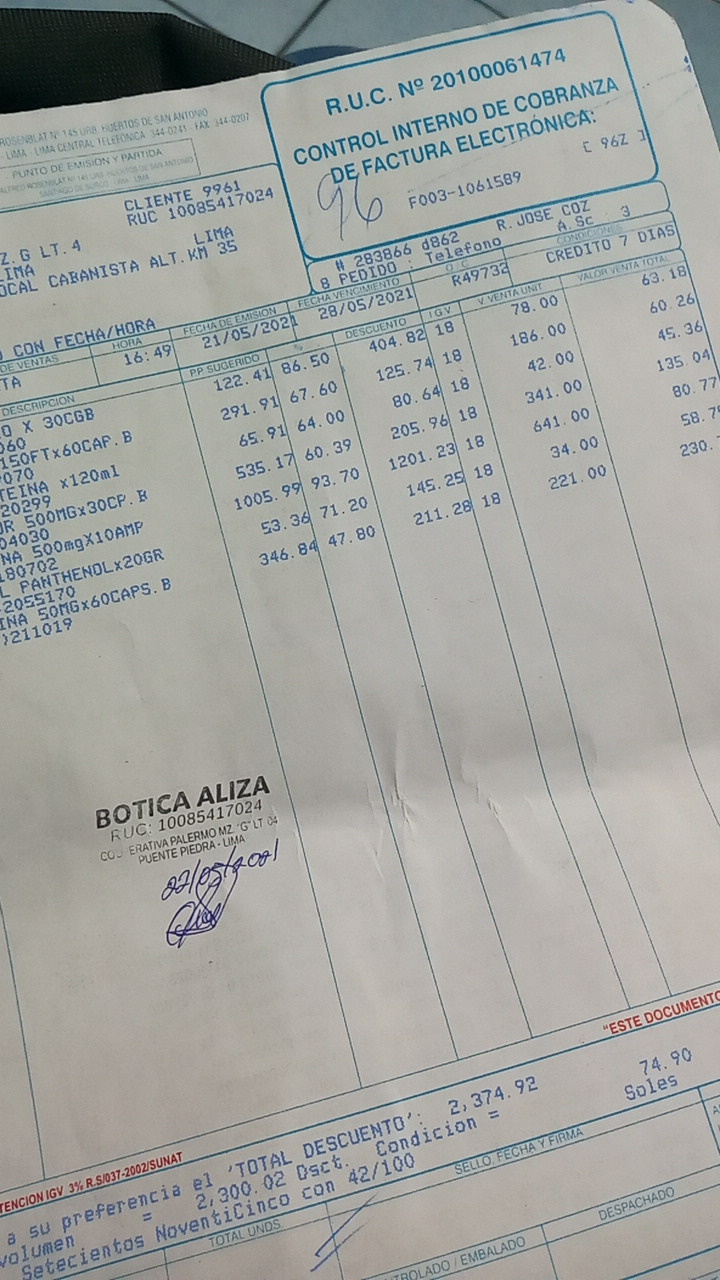 ROSENBLAT Nº 145 URB. HUERTOS DE SAN ANTONIO
LIMA - LIMA CENTRAL TELEFONICA 344-0241 - FAX 344-0207
PUNTO DE EMISIÓN Y PARTIDA
R.U.C. Nº 20100061474
CONTROL INTERNO DE COBRANZA
DE FACTURA ELECTRÓNICA:
[ 96Z ]
96
F003-1061589
CLIENTE 9961
RUC 10085417024
Z.G LT.4
LIMA
LIMA
LOCAL CABANISTA ALT.KM 35
# 283866 d862 R.JOSE COZ
8 PEDIDO : Telefono A.Sc 3
CON FECHA/HORA
DE VENTAS HORA FECHA DE EMISIÓN FECHA VENCIMIENTO O/C CONDICIONES
TA 16:49 21/05/2021 28/05/2021 R49732 CREDITO 7 DIAS
DESCRIPCION PP SUGERIDO % DESCUENTO I G V V VENTA UNIT VALOR VENTA TOTAL
O X 30CGB 122.41 86.50 404.82 18 78.00 63.18
060
150FTx60CAP.B 291.91 67.60 125.74 18 186.00 60.26
P070
TEINA x120ml 65.91 64.00 80.64 18 42.00 45.36
20299
OR 500MGx30CP.B 535.17 60.39 205.96 18 341.00 135.04
04030
NA 500mgX10AMP 1005.99 93.70 1201.23 18 641.00 80.77
180702
L PANTHENOLx20GR 53.36 71.20 145.25 18 34.00 58.7
2055170
INA 50MGx60CAPS.B 346.84 47.80 211.28 18 221.00 230.
)211019
BOTICA ALIZA
RUC: 10085417024
COOPERATIVA PALERMO MZ. "G" LT. 04
PUENTE PIEDRA - LIMA
22/05/2021
"ESTE DOCUMENTO
TENCION IGV 3% R.S/037-2002/SUNAT
a su preferencia el 'TOTAL DESCUENTO': 2,374.92
volumen = 2,300.02 Dsct. Condicion = 74.90
Setecientos NoventiCinco con 42/100 Soles
TOTAL UNDS.
SELLO, FECHA Y FIRMA
CONTROLADO / EMBALADO
DESPACHADO